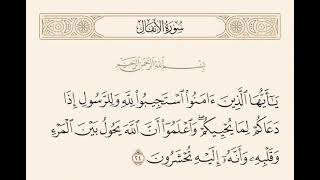 سُورَةُ الأَنفَالِ
بِسْمِ اللَّهِ الرَّحْمَٰنِ الرَّحِيمِ
يَٰٓأَيُّهَا ٱلَّذِينَ ءَامَنُوا۟ ٱسْتَجِيبُوا۟ لِلَّهِ وَلِلرَّسُولِ إِذَا
دَعَاكُمْ لِمَا يُحْيِيكُمْ ۖ وَٱعْلَمُوٓا۟ أَنَّ ٱللَّهَ يَحُولُ بَيْنَ ٱلْمَرْءِ
وَقَلْبِهِۦ وَأَنَّهُۥٓ إِلَيْهِ تُحْشَرُونَ ٢٤